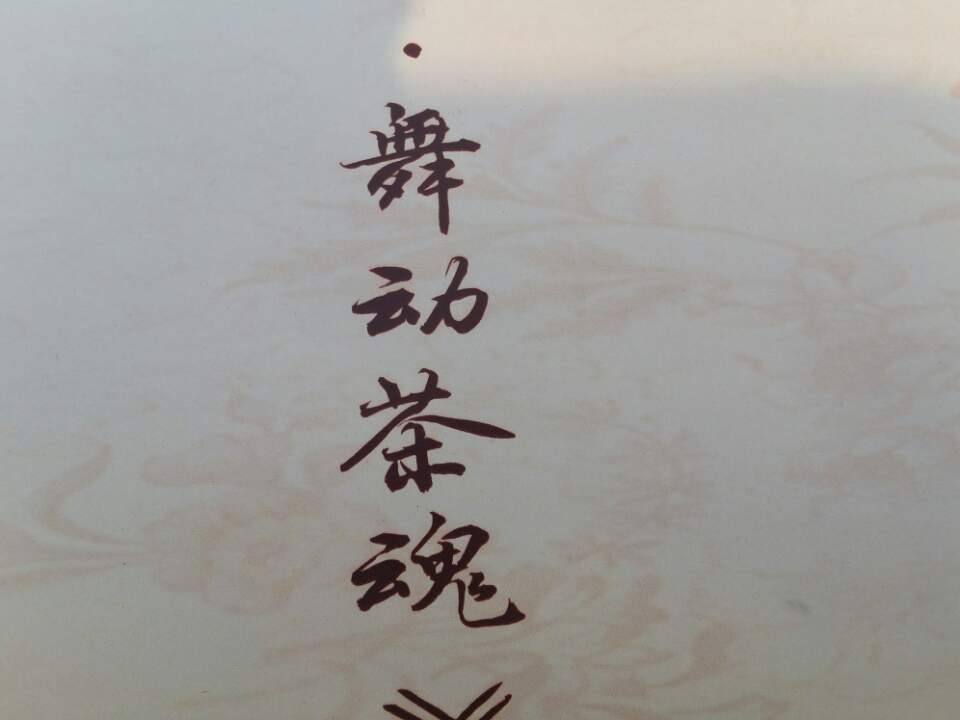 ·舞动茶魂》